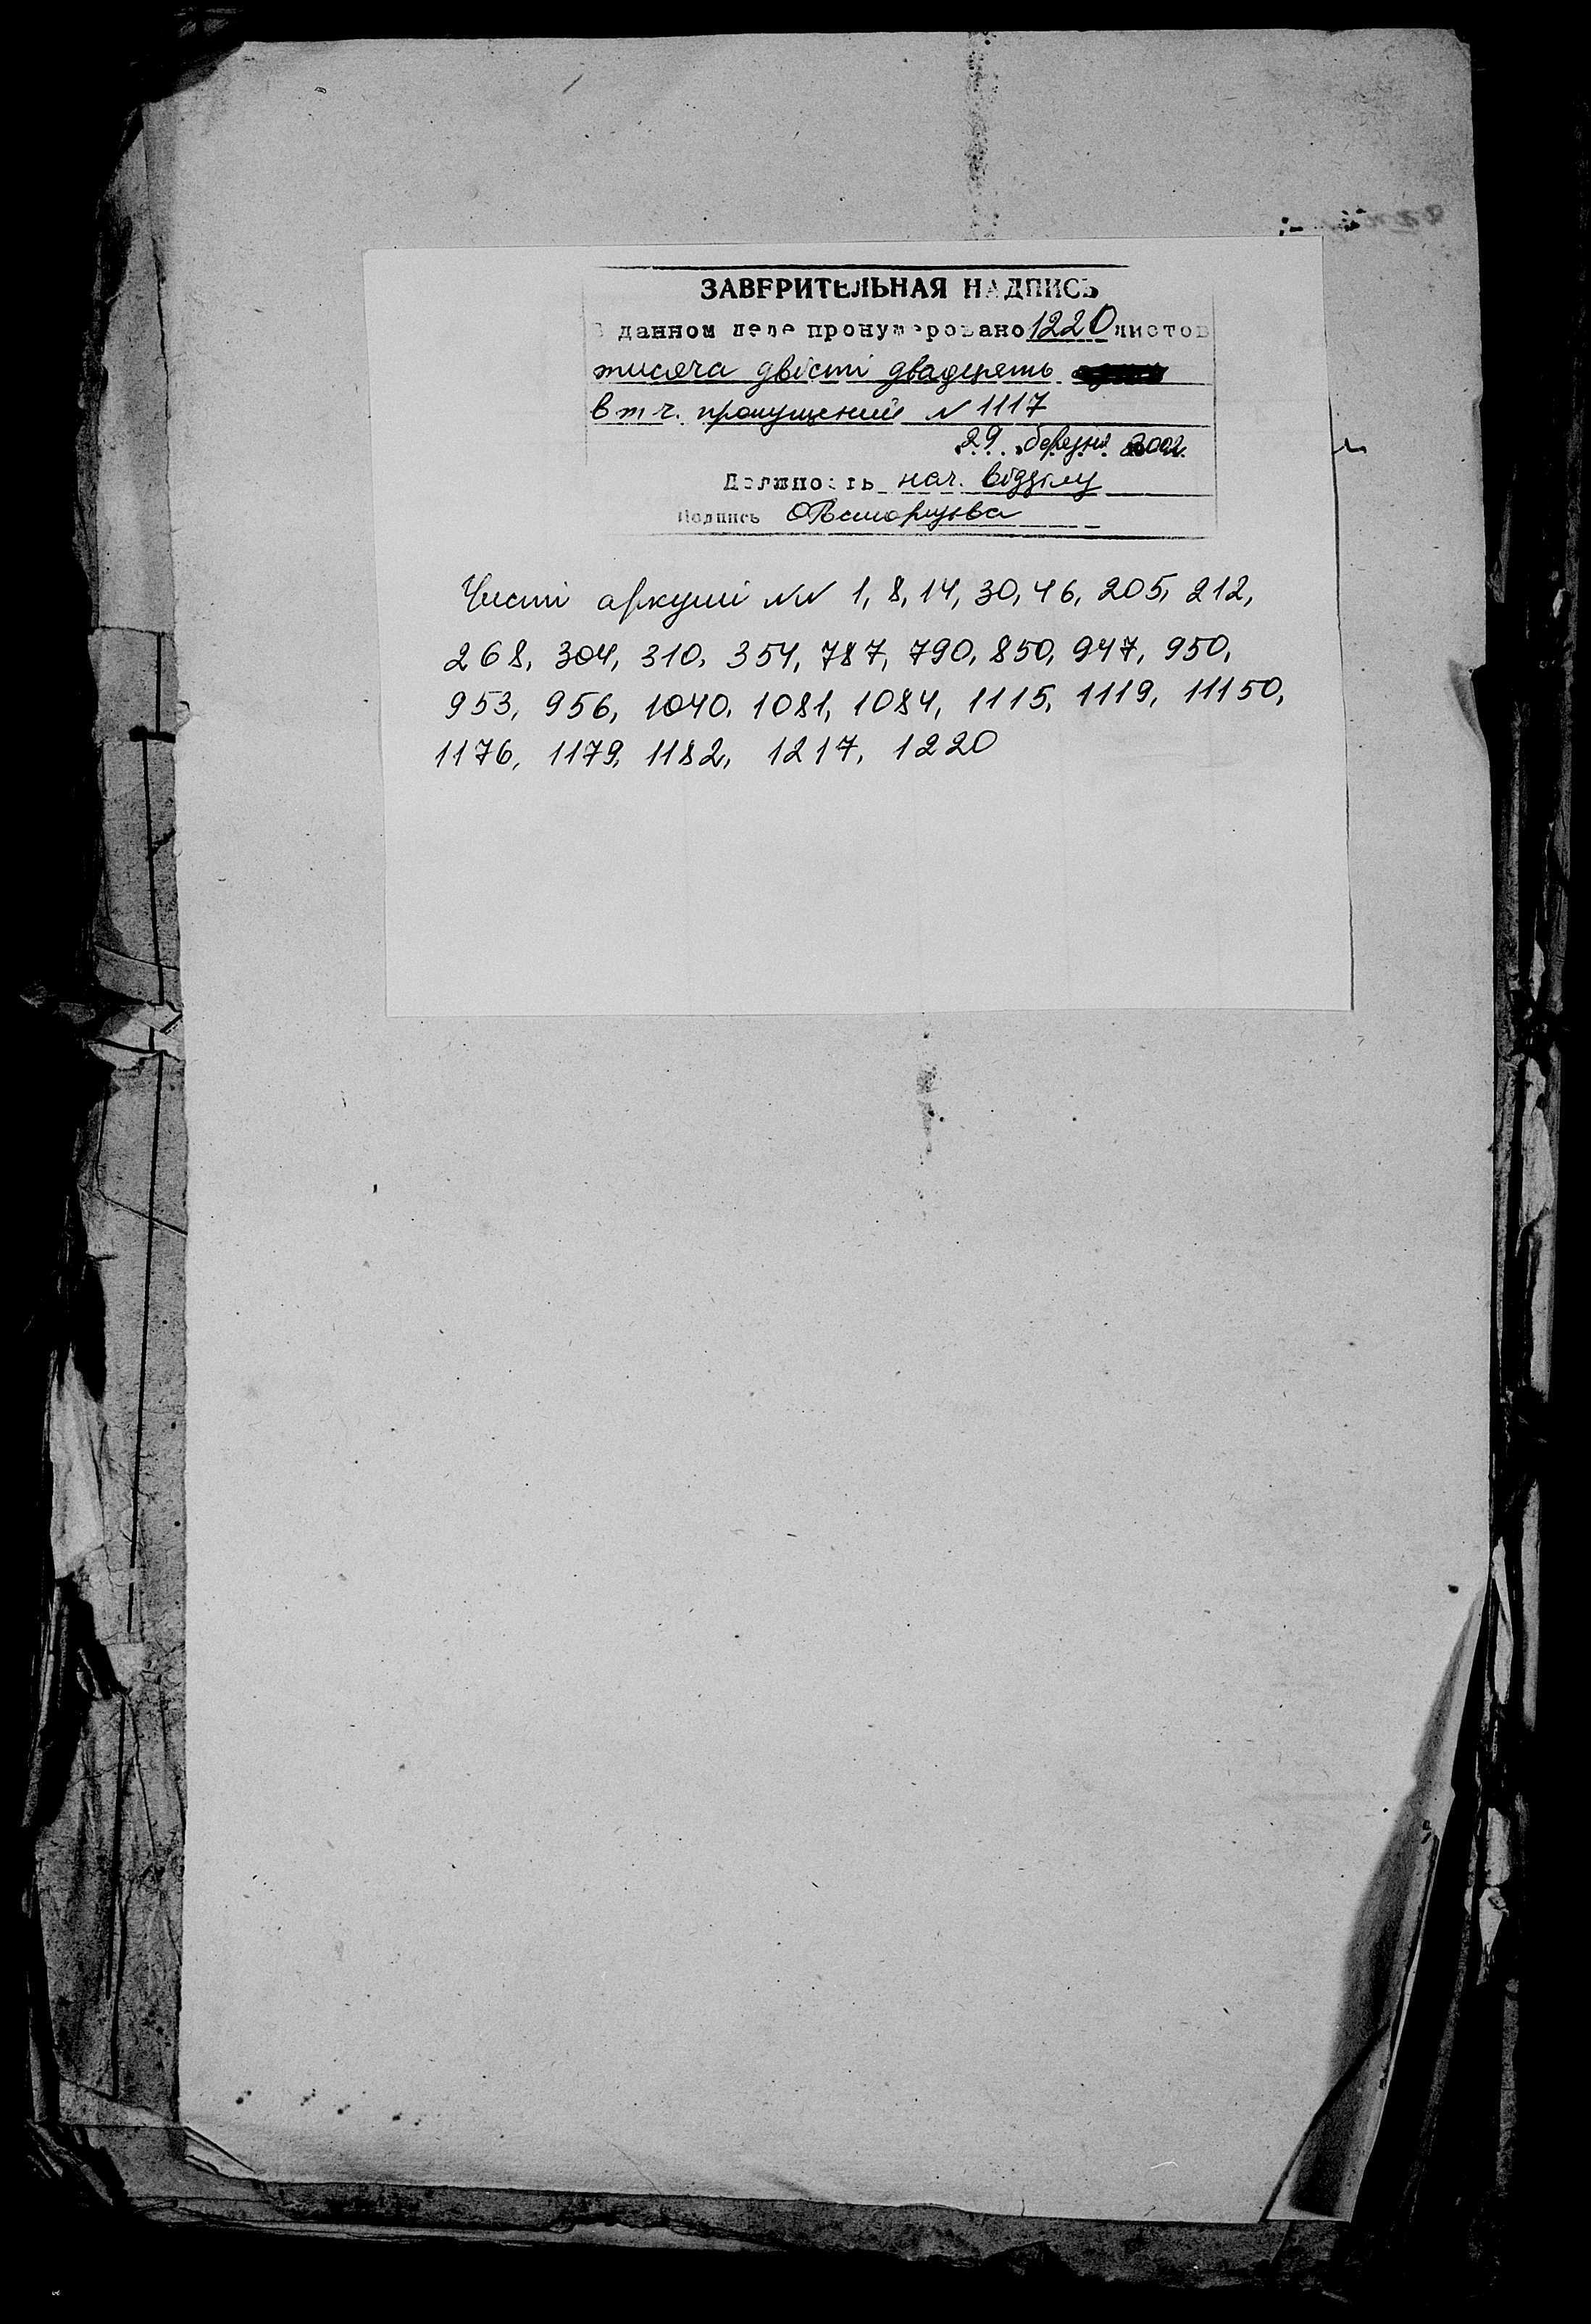 ЗАВЕРИТЕЛЬНАЯ НАДПИСЬ
В данном деле пронумеровано 1220 листов
тисяча двісті двадцять
в т. ч. пропущений N 1117
29 березня 2002
Должность нач. відділу
Подпись
Чисті аркуші NN 1, 8, 14, 30, 46, 205, 212,
268, 304, 310, 354, 787, 790, 850, 947, 950,
953, 956, 1040, 1081, 1084, 1115, 1119, 11150,
1176, 1179, 1182, 1217, 1220